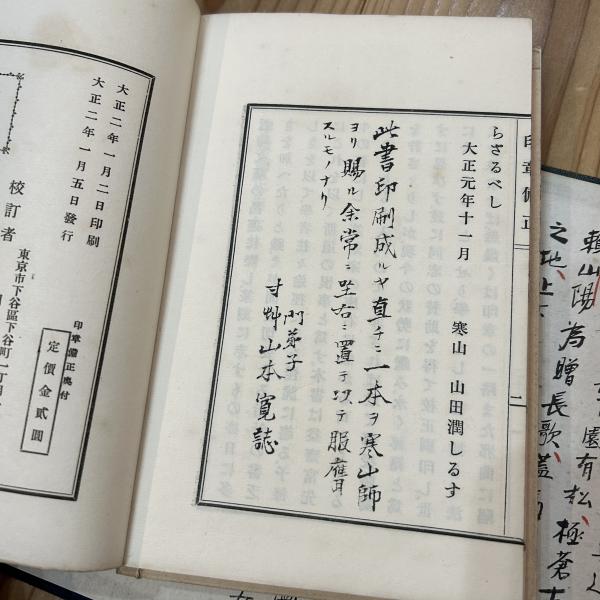 之地上下
賴山陽為贈長歌蓋
園有松極蒼
印章備正
二
らさるべし
大正元年十一月
寒山 山田潤しるす
此書印刷成ルヤ直チニ一本ヲ寒山師
ヨリ賜ル余常ニ坐右ニ置テ以テ服膺
スルモノナリ
門弟子
寸艸山本寛誌
大正二年一月二日印刷
大正二年一月五日發行
校訂者
東京市下谷區下谷町一丁目
印章備正奥付
定價金貳圓